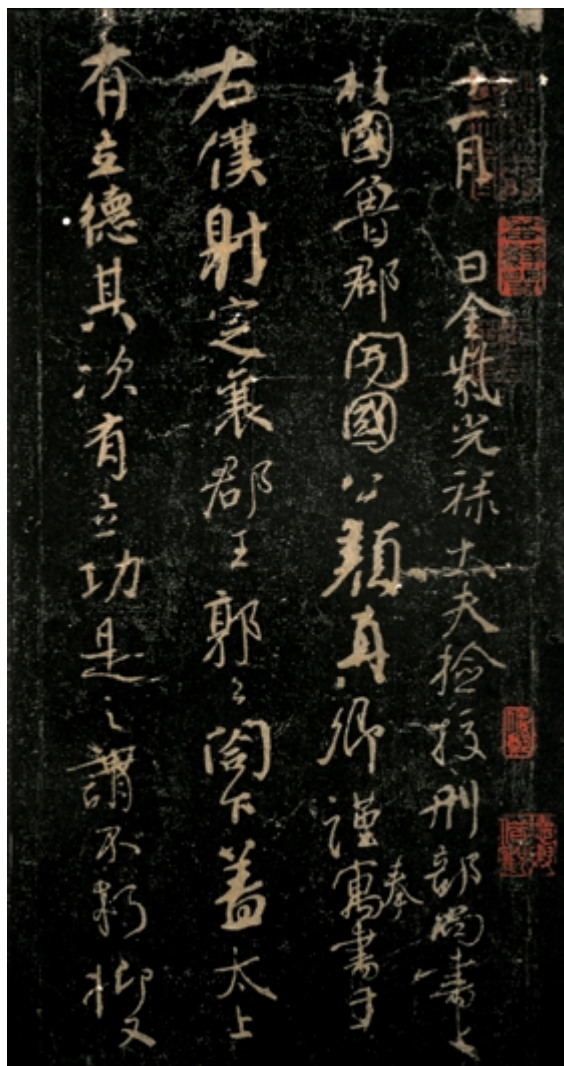 十一月日金紫光禄大夫捡挍刑部尚書上
柱國魯郡開國公顔真卿謹奉寓書于
右僕射定襄郡王郭公閤下蓋太上
有立德其次有立功是之謂不朽抑又